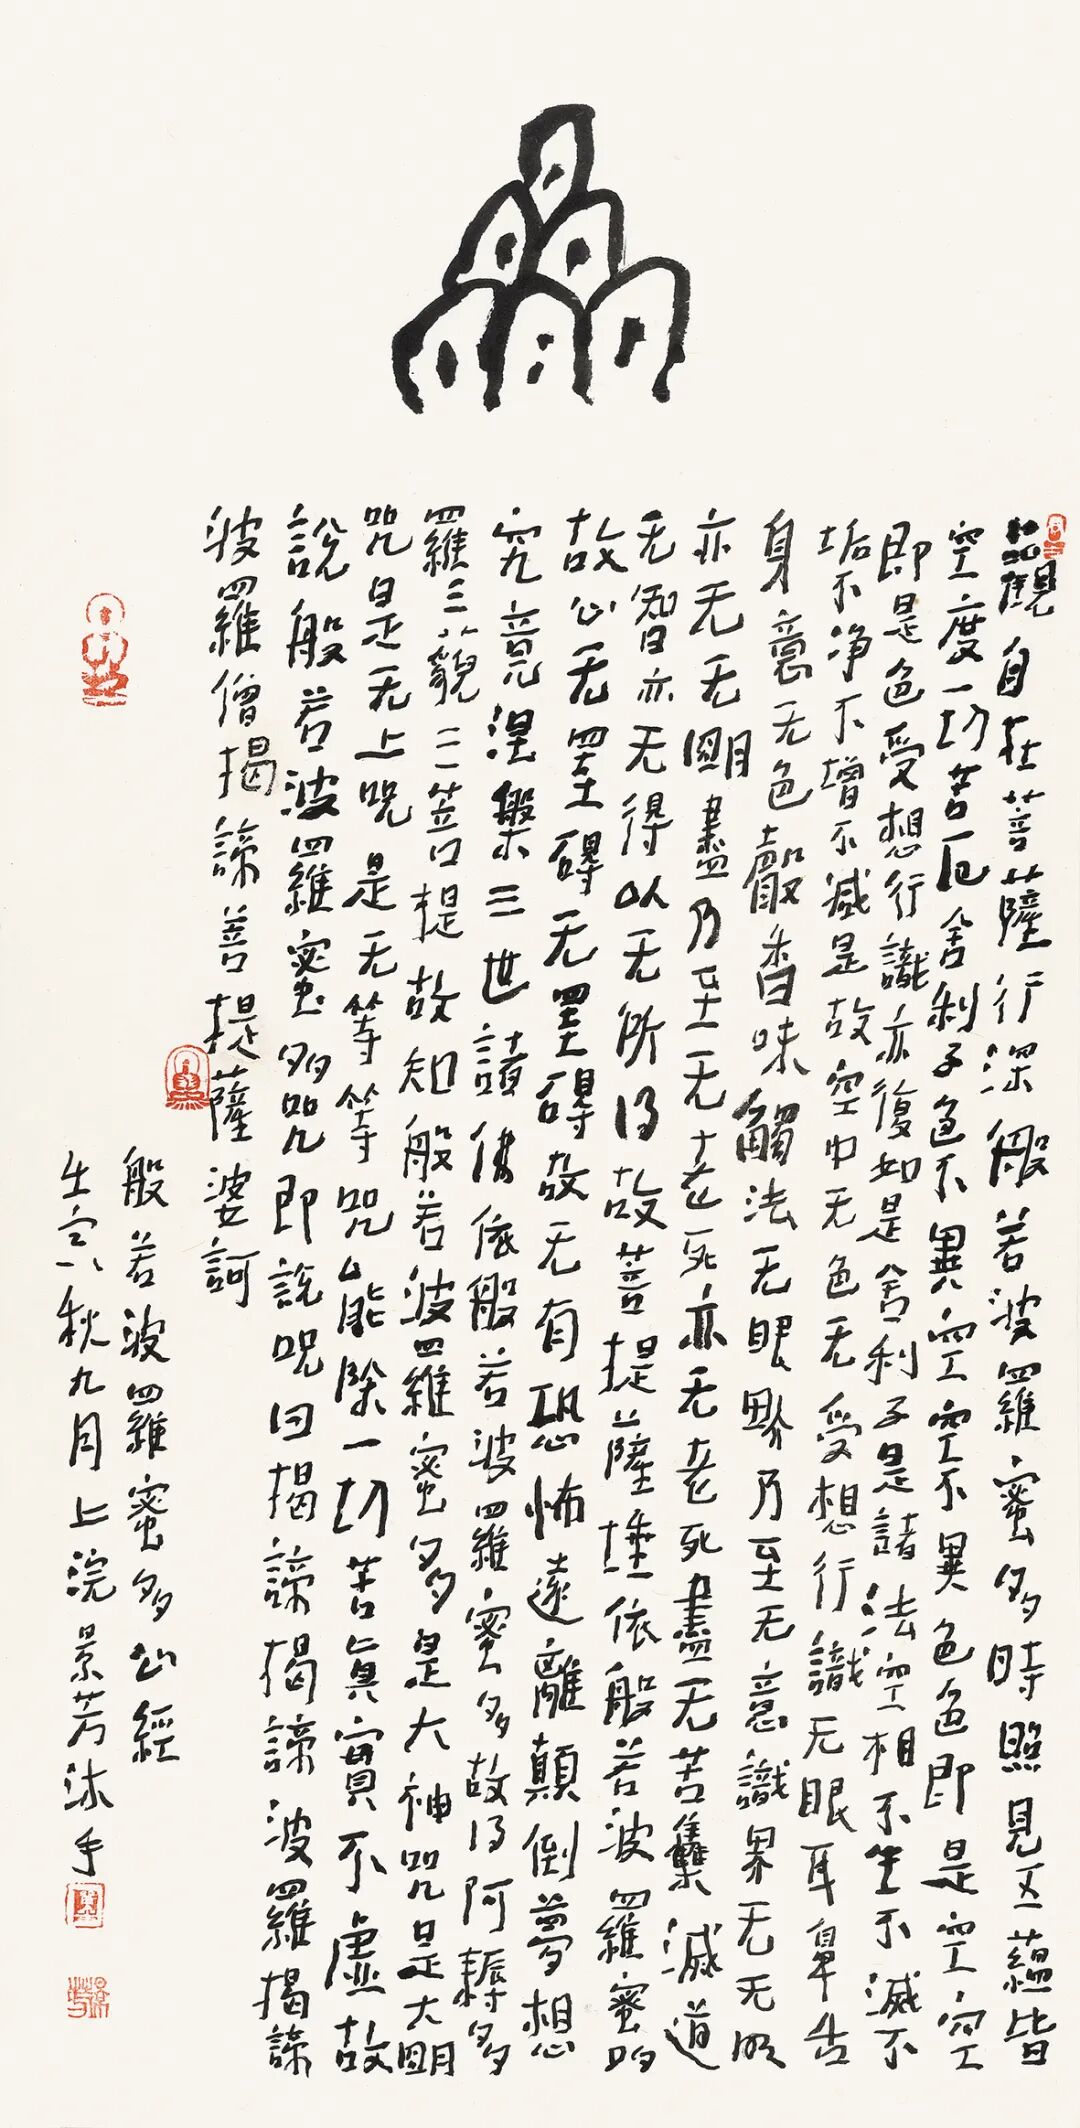 觀自在菩薩行深般若波羅蜜多時照見五蘊皆
空度一切苦厄舍利子色不異空空不異色色即是空空
即是色受想行識亦復如是舍利子是諸法空相不生不滅不
垢不净不增不減是故空中无色无受想行識无眼耳鼻舌
身意无色聲香味觸法无眼界乃至无意識界无无明
亦无无明盡乃至无老死亦无老死盡无苦集滅道
无智亦无得以无所得故菩提薩埵依般若波羅蜜多
故心无罣礙无罣礙故无有恐怖遠離顛倒夢想
究竟涅槃三世諸佛依般若波羅蜜多故得阿耨多
羅三藐三菩提故知般若波羅蜜多是大神咒是大明
咒是无上咒是无等等咒能除一切苦真實不虛故
說般若波羅蜜多咒即說咒曰揭諦揭諦波羅揭諦
波羅僧揭諦菩提薩婆訶
般若波羅蜜多心經
秋九月上浣景芳沐手